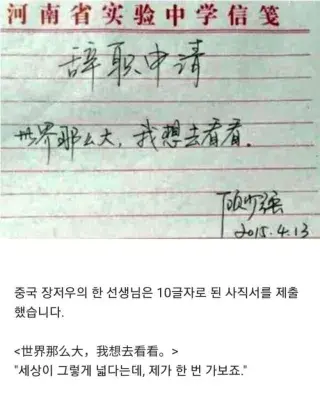 河南省实验中学信笺
辞职申请
世界那么大，我想去看看。
顾少强
2015.4.13
중국 장저우의 한 선생님은 10글자로 된 사직서를 제출
했습니다.
<世界那么大，我想去看看。>
"세상이 그렇게 넓다는데, 제가 한 번 가보죠."